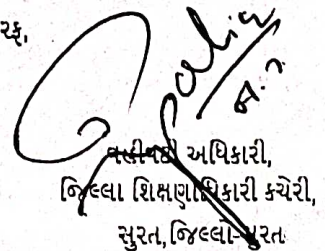 રફ,
વહીવટી અધિકારી,
જિલ્લા શિક્ષણાધિકારી કચેરી,
સુરત, જિલ્લો-સુરત